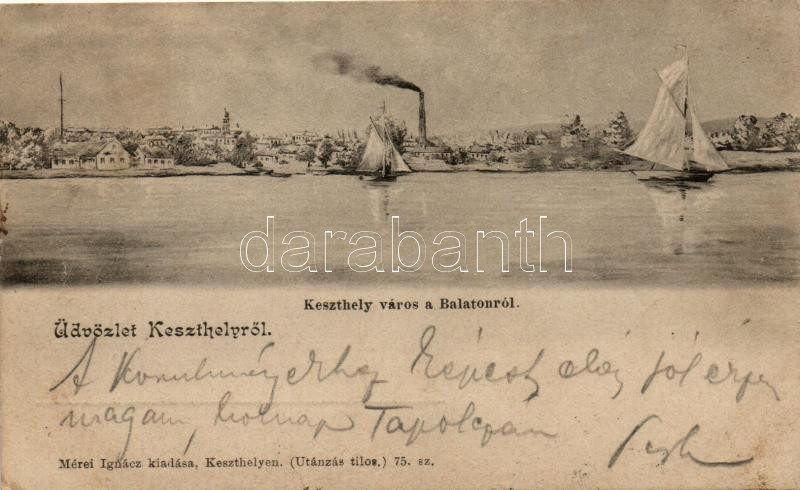 darabanth
Keszthely város a Balatonról.
Üdvözlet Keszthelyről.
A képest elég jól
magam, holnap Tapolczán
Mérei Ignácz kiadása, Keszthelyen. (Utánzás tilos.) 75. sz.